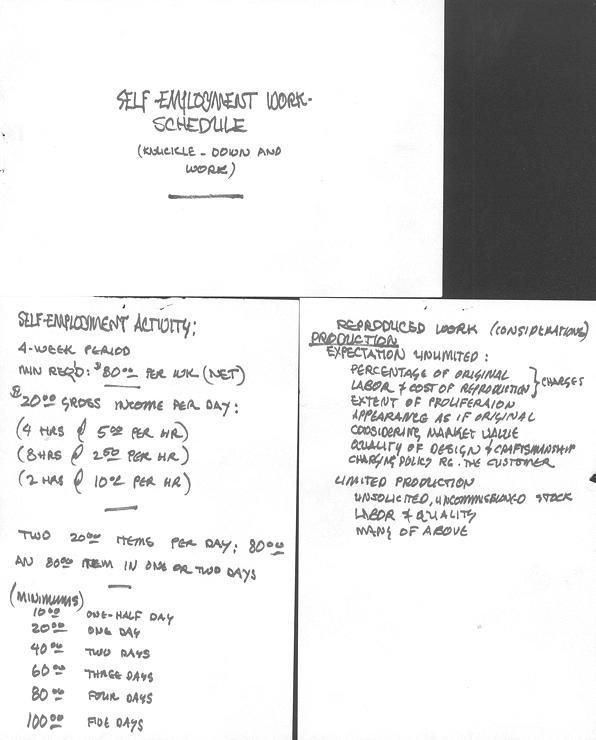 SELF-EMPLOYMENT WORK-
SCHEDULE
(KNUCKLE-DOWN AND
WORK)
SELF-EMPLOYMENT ACTIVITY:
4-WEEK PERIOD
MIN REQ'D: $80.00 PER WK (NET)
$20.00 GROSS INCOME PER DAY:
(4 HRS @ 5.00 PER HR)
(8 HRS @ 2.50 PER HR)
(2 HRS @ 10.00 PER HR)
TWO 20.00 ITEMS PER DAY; 80.00
AN 80.00 ITEM IN ONE OR TWO DAYS
(MINIMUMS)
10.00 ONE-HALF DAY
20.00 ONE DAY
40.00 TWO DAYS
60.00 THREE DAYS
80.00 FOUR DAYS
100.00 FIVE DAYS
REPRODUCED WORK (CONSIDERATIONS)
PRODUCTION
EXPECTATION UNLIMITED:
PERCENTAGE OF ORIGINAL
LABOR & COST OF REPRODUCTION } CHARGES
EXTENT OF PROLIFERAION
APPEARANCE AS IF ORIGINAL
CONSIDERING MARKET VALUE
QUALITY OF DESIGN & CRAFTSMANSHIP
CHARGING POLICY RE. THE CUSTOMER
LIMITED PRODUCTION
UNSOLICITED, STOCK
LABOR & QUALITY
MANY OF ABOVE